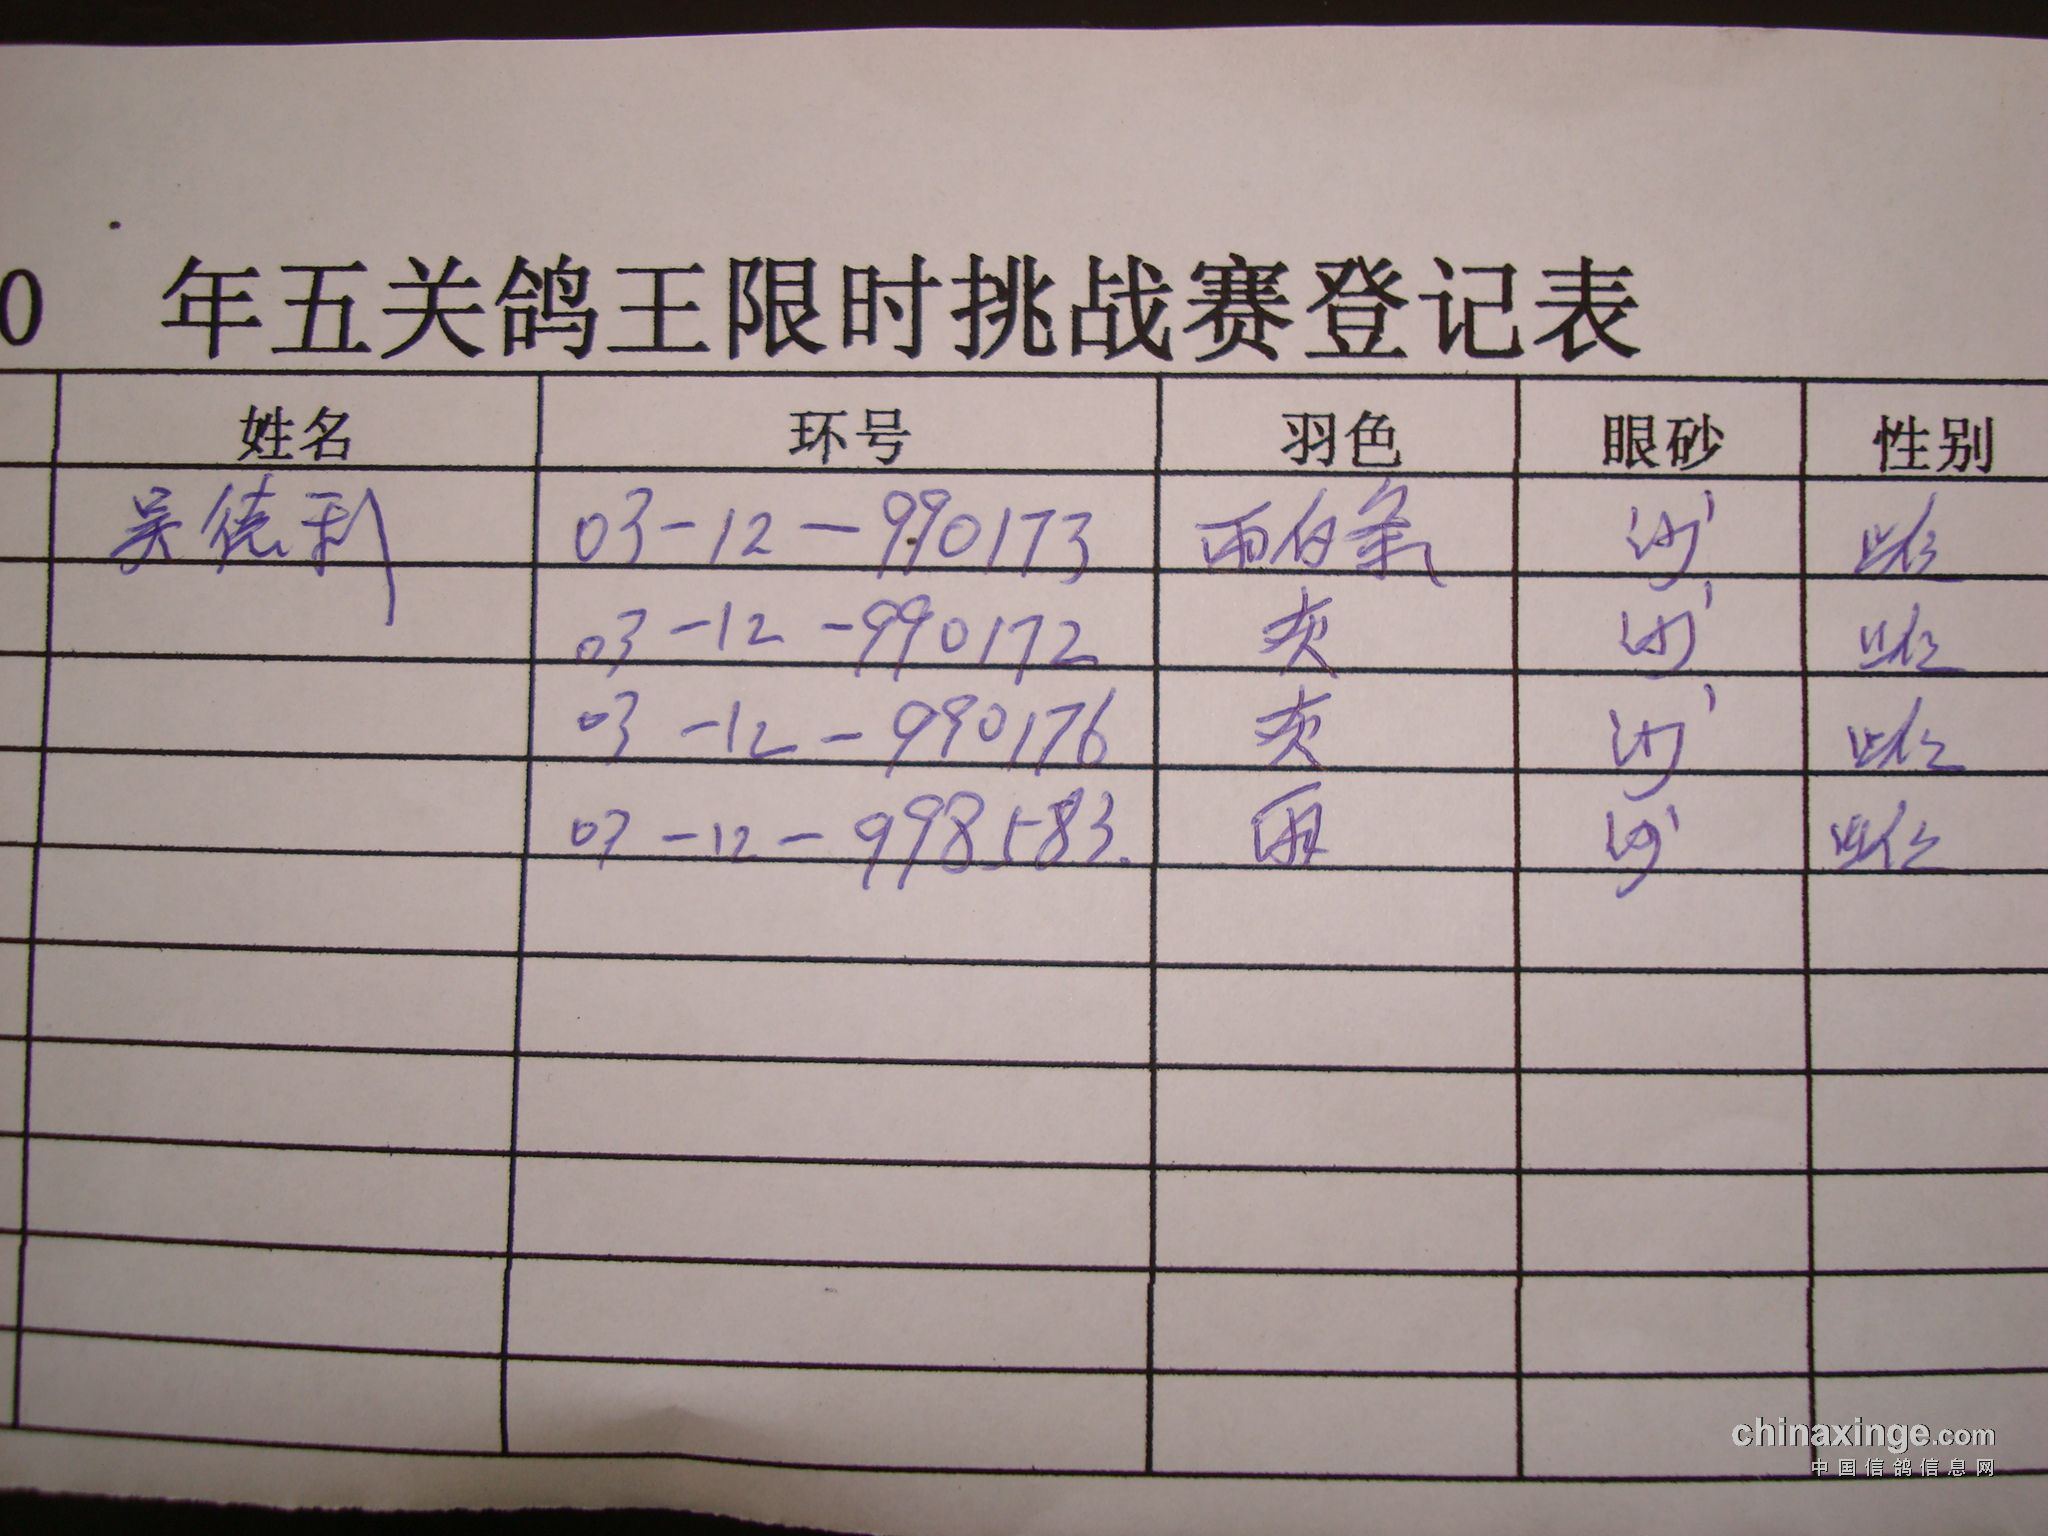 0 年五关鸽王限时挑战赛登记表
姓名 环号 羽色 眼砂 性别
吴德利 03-12-990173 雨白条 沙 雌
03-12-990172 灰 沙 雌
03-12-990176 灰 沙 雌
03-12-998583. 雨 沙 雌
chinaxinge.com
中国信鸽信息网